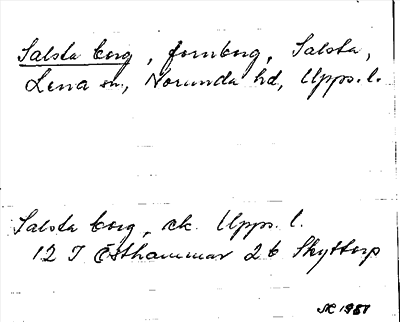 Salsta borg, fornborg, Salsta,
Lena sn, Norunda hd, Upps. l.
Salsta borg, ek. Upps. l.
12 I Östhammar 2 b Skyttorp
1951